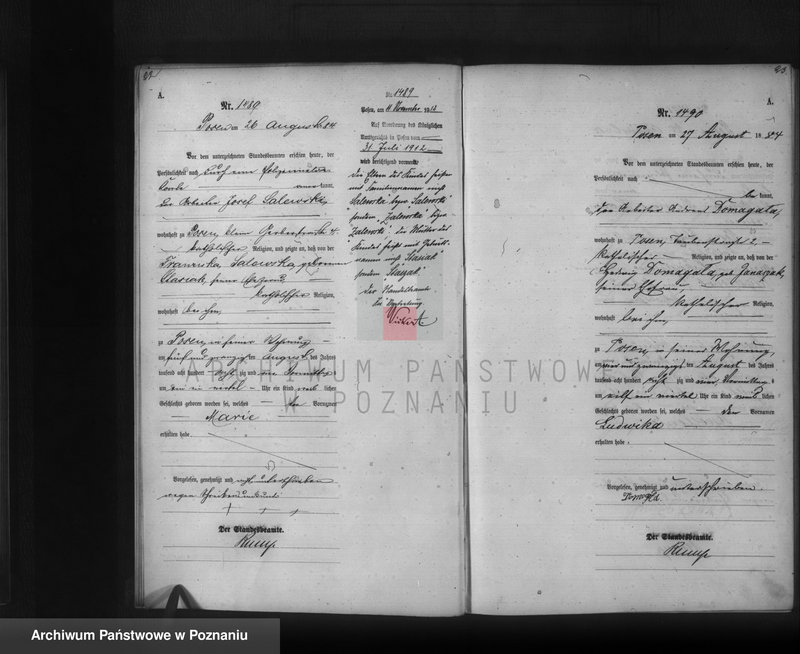 A.
Nr. 1489
Posen am 26 August 84
Vor dem unterzeichneten Standesbeamten erschien heute, der
Persönlichkeit nach durch eine Polizeimelde
karte kannt,
der Arbeiter Josef Salewska,
wohnhaft zu Posen, kleine Gerberstraße 4
katholischer Religion, und zeigte an, daß von der
Franziska Salewska, geborenen
Stasiak, seiner Ehefrau,
katholischer Religion,
wohnhaft bei ihm,
zu Posen in seiner Wohnung
am fünf und zwanzigsten August des Jahres
tausend acht hundert achtzig und vier Vormittags
um ein viertel Uhr ein Kind weiblichen
Geschlechts geboren worden sei, welches den Vornamen
Marie
erhalten habe.
Vorgelesen, genehmigt und
wegen Schreibensunkunde
+ + +
Der Standesbeamte.
Rump
Nr. 1489
Posen, am 11 November 1912
Auf Anordnung des Königlichen
Amtsgerichts in Posen vom
31. Juli 1912
wird berichtigend vermerkt:
die Eltern des Kindes heißen
mit Familiennamen nicht
Salewska bzw. Salewski
sondern Zalewska bzw.
Zalewski; die Mutter des
Kindes heißt mit Geburts-
namen nicht Stasiak
sondern Staszak
Der Standesbeamte
In Vertretung
Wickert
A.
Nr. 1490
Posen am 27 August 1884
Vor dem unterzeichneten Standesbeamten erschien heute, der
Persönlichkeit nach
bekannt,
der Arbeiter Andreas Domagala,
wohnhaft zu Posen, 2,
katholischer Religion, und zeigte an, daß von der
Hedwig Domagala, geb. Janaszak,
seiner Ehefrau,
katholischer Religion,
wohnhaft bei ihm,
zu Posen in seiner Wohnung,
am und zwanzigsten August des Jahres
tausend acht hundert achtzig und vier Vormittags
um viertel Uhr ein Kind lichen
Geschlechts geboren worden sei, welches den Vornamen
Ludwika
erhalten habe.
Vorgelesen, genehmigt und unterschrieben.
Domagla.
Der Standesbeamte.
Rump
ARCHIWUM PAŃSTWOWE
W POZNANIU
Archiwum Państwowe w Poznaniu